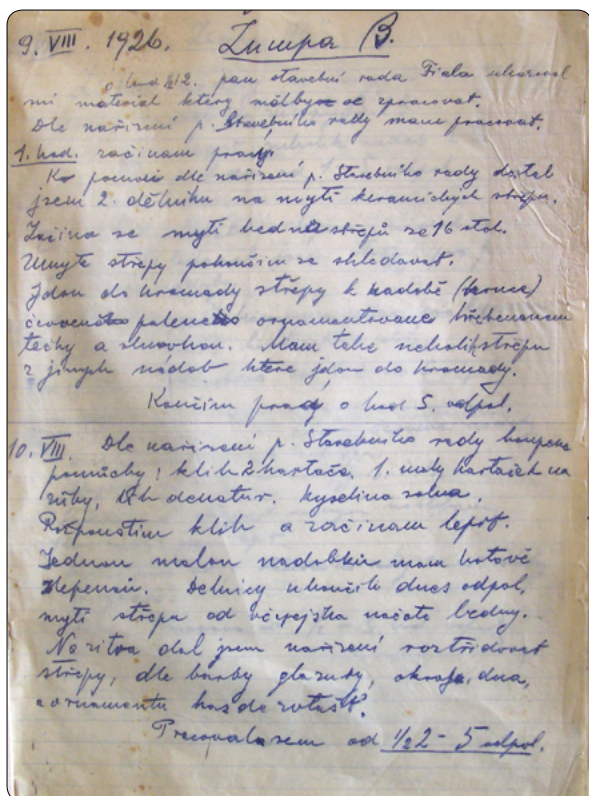 9. VIII. 1926. Žumpa B.
o hod ½12. pan stavební rada Fiala ukazoval
mi material ktery mělby se zpracovat.
Dle nařizení p. Stavebniho rady mam pracovat.
1. hod. začinam praci
Ku pomoci dle nařizení p. Stavebniho rady dostal
jsem 2. dělniku na mytí keramickych střepu.
Začina se myti bedna střepů ze 16 stol.
Umyte střepy pokoušim se shledavat.
Jdou do hromady střepy k nadobě (hrnec)
červeně palene ornamentovane hřebenovou
techy a vlnovkou. Mam take nekolik střepu
z jinych nádob ktere jdou do hromady.
Končim praci o hod 5. odpol.
10. VIII. Dle nařizení p. Stavebniho rady koupeno
pomůcky: klih 2 kartače, 1. maly kartaček na
zuby, lih denatur. kyselina solna.
Rozpouštim klih a začinam lepit.
Jednou malou nadobku mam hotově
zlepenou. Delnicy ukončili dnes odpol.
myti střepu od včejejska načate bedny.
Na zitra dal jsem nařizení roztřidovat
střepy, dle barby glazury, okraje, dna,
a ornamentu kazde zvlašť.
Pracovala jsem od ½2 - 5 odpol.